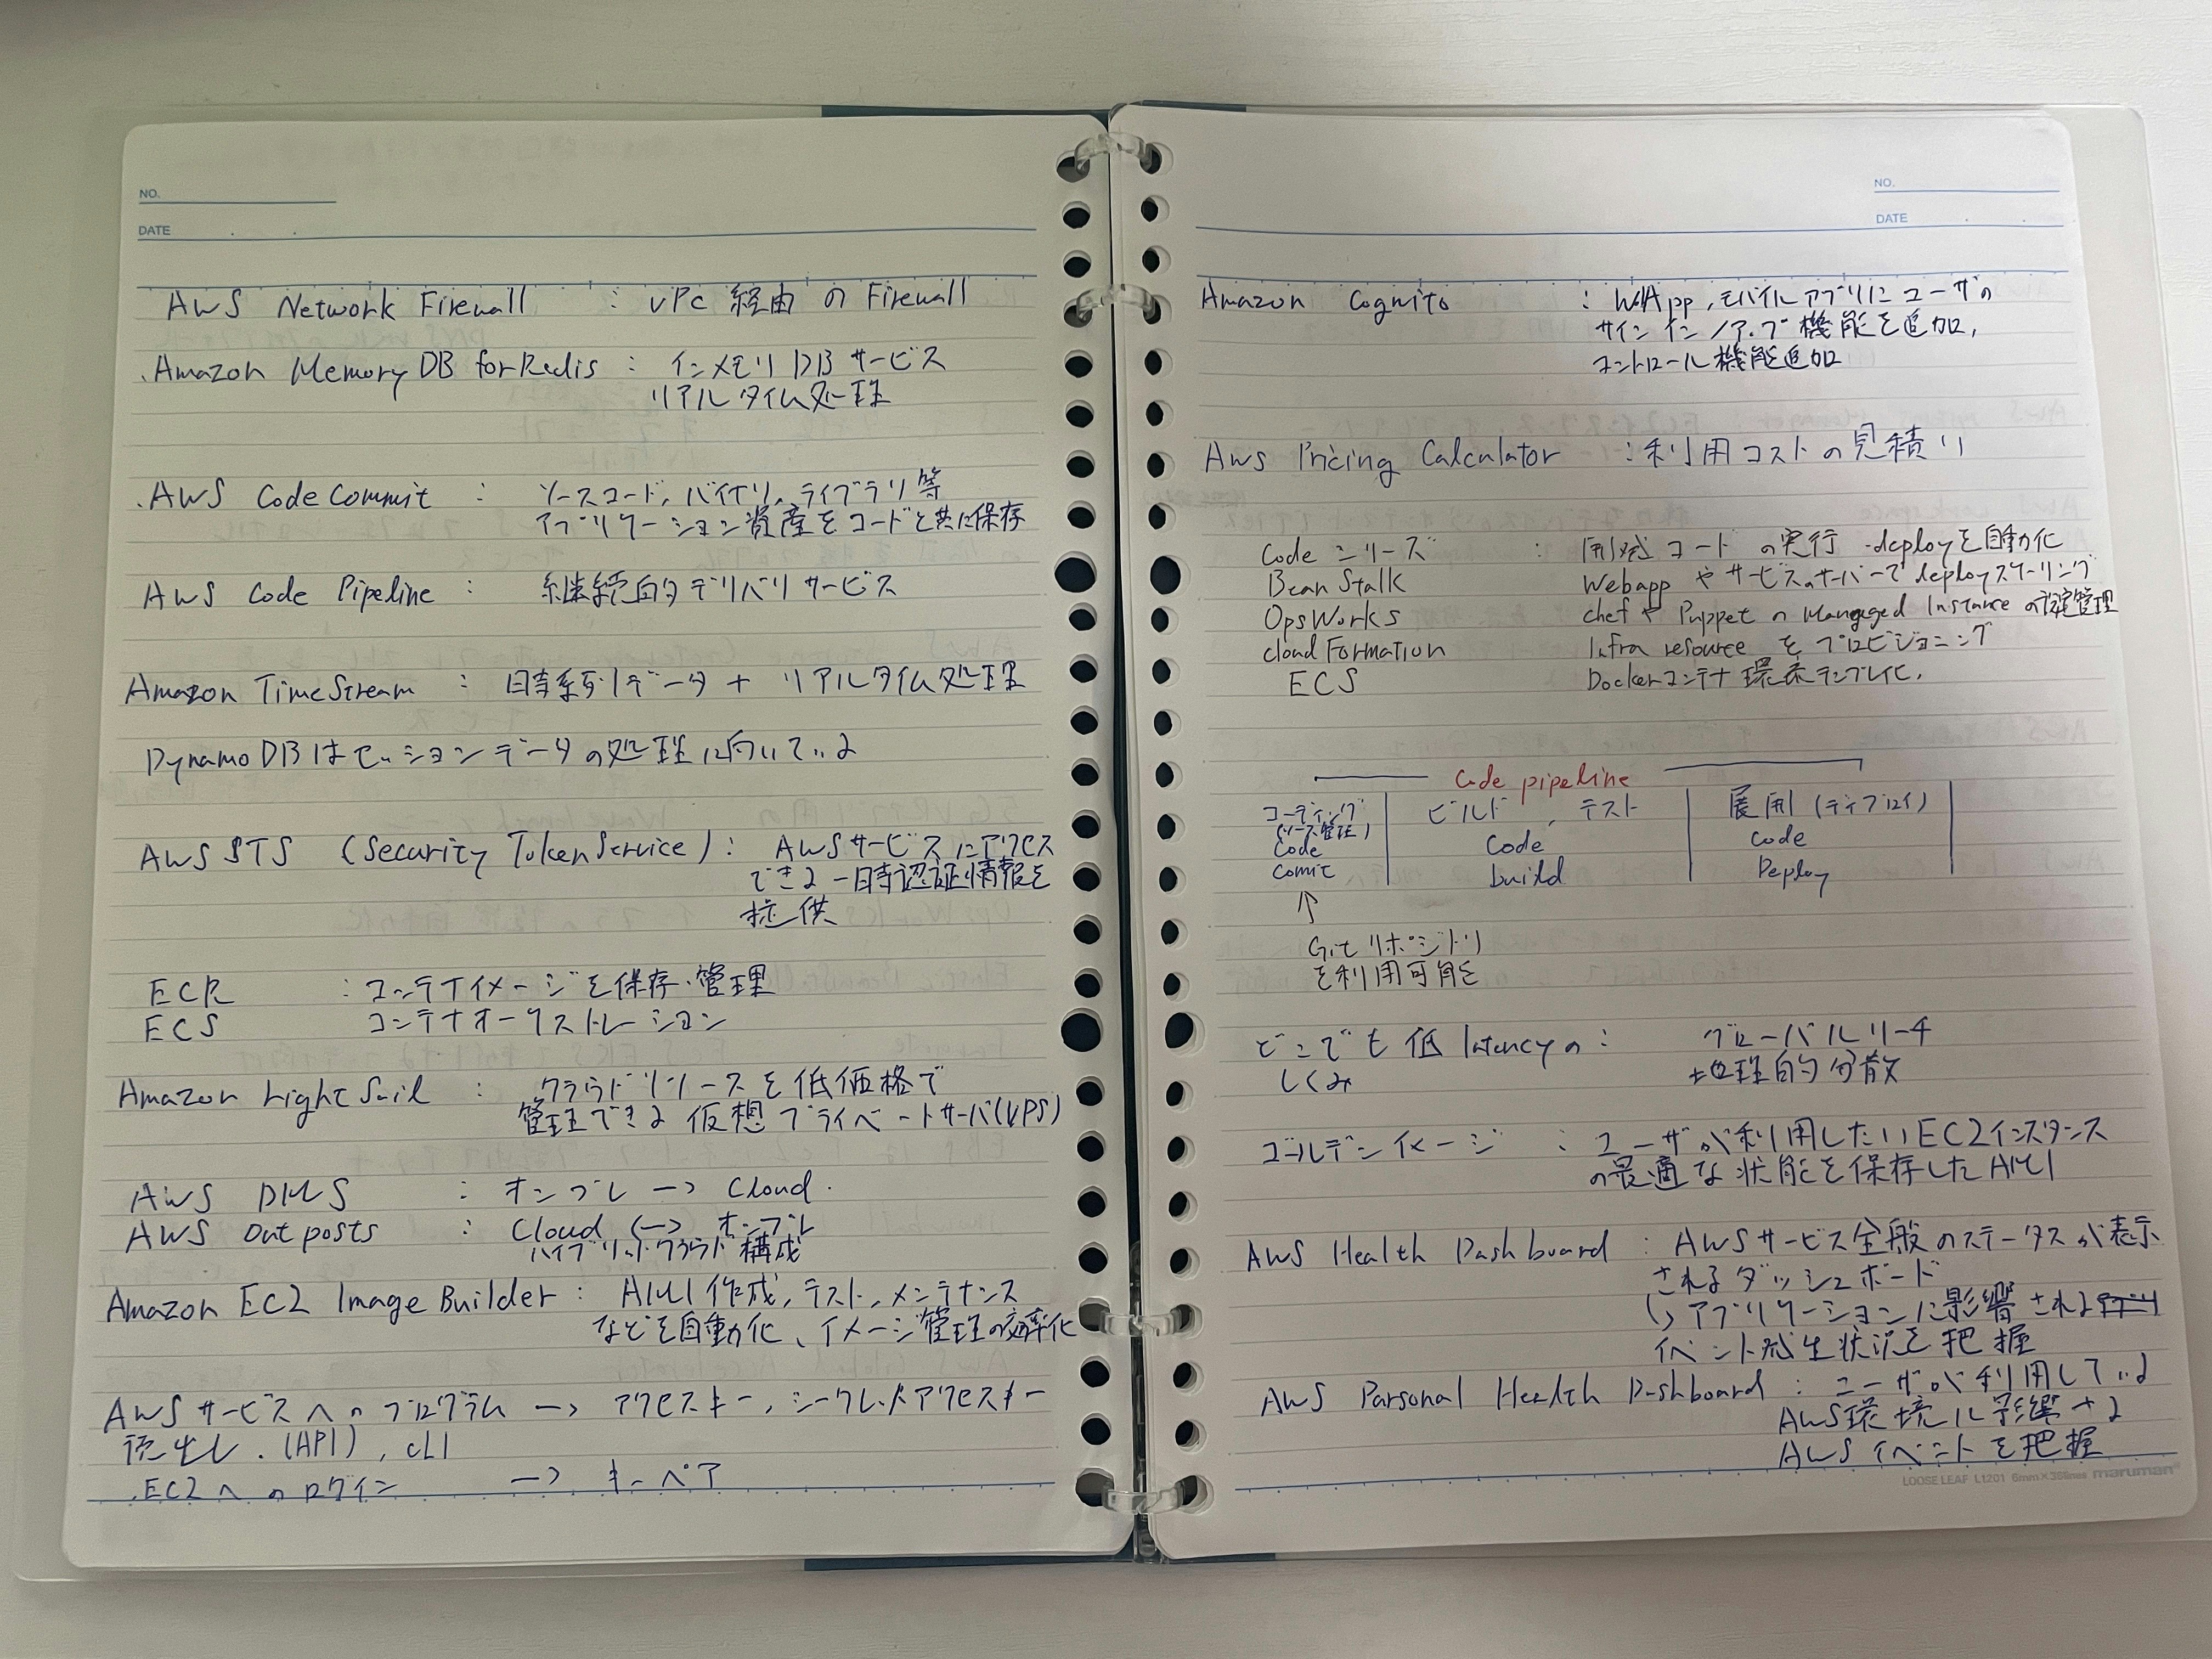 NO.
DATE . .
AWS Network Firewall : VPC 経由の Firewall
Amazon Memory DB for Redis : インメモリDBサービス
リアルタイム処理
AWS CodeCommit : ソースコード, バイナリ, ライブラリ等
アプリケーション資産をコードと共に保存
AWS Code Pipeline : 継続的デリバリサービス
Amazon TimeStream : 時系列データ + リアルタイム処理
DynamoDBはセッションデータの処理に向いている
AWS STS (Security Token Service) : AWSサービスにアクセス
できる一時認証情報を
提供
ECR : コンテナイメージを保存・管理
ECS コンテナオーケストレーション
Amazon LightSail : クラウドリソースを低価格で
管理できる仮想プライベートサーバ(VPS)
AWS DMS : オンプレ → Cloud.
AWS Outposts : Cloud ←→ オンプレ
ハイブリットクラウド構成
Amazon EC2 Image Builder : AMI作成, テスト, メンテナンス
などを自動化、イメージ管理の効率化
AWSサービスへのプログラム → アクセスキー, シークレットアクセスキー
読出し. (API), CLI
EC2へのログイン → キーペア
NO.
DATE . .
Amazon Cognito : WebApp, モバイルアプリにユーザの
サインイン/アップ機能を追加,
コントロール機能追加
AWS Pricing Calculator : 利用コストの見積り
Codeシリーズ : 開発コードの実行・deployを自動化
BeanStalk Webappやサービスのサーバーでdeployスケーリング
OpsWorks chefやPuppetのManaged Instanceの管理
cloudFormation Infra resourceをプロビジョニング
ECS Dockerコンテナ環境テンプレ化.
Code pipeline
コーディング ビルド, テスト 展開(ディプロイ)
(ソース管理)
Code Code Code
Comit build Deploy
↑
Git リポジトリ
を利用可能を
どこでも低latencyの : グローバルリーチ
しくみ 地理的分散
ゴールデンイメージ : ユーザが利用したいEC2インスタンス
の最適な状態を保存したAMI
AWS Health Dashboard : AWSサービス全般のステータスが表示
されるダッシュボード
↳アプリケーションに影響される
イベント発生状況を把握
AWS Parsonal Health Dashboard : ユーザが利用している
AWS環境に影響する
AWSイベントを把握
LOOSE LEAF L1201 6mm×35lines maruman